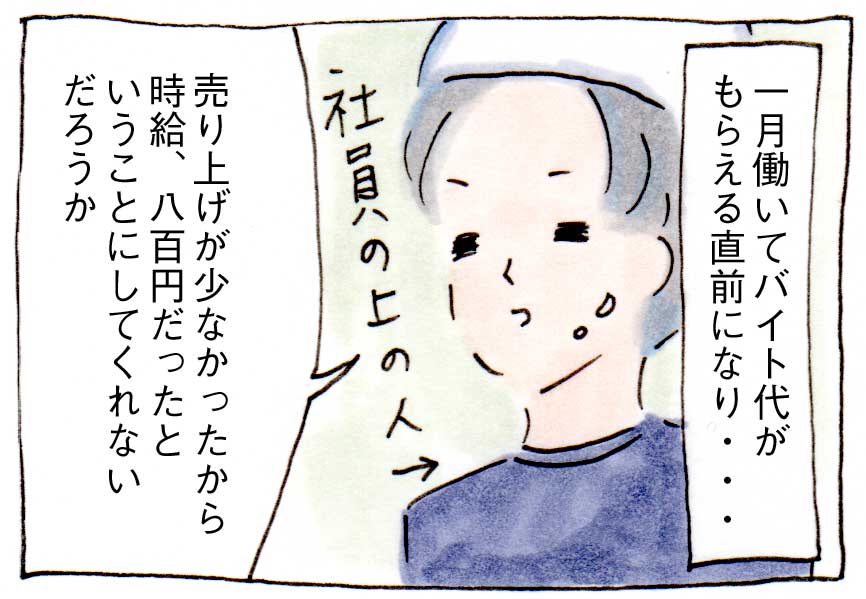 一月働いてバイト代が
もらえる直前になり・・・
社員の上の人→
売り上げが少なかったから
時給、八百円だったと
いうことにしてくれない
だろうか